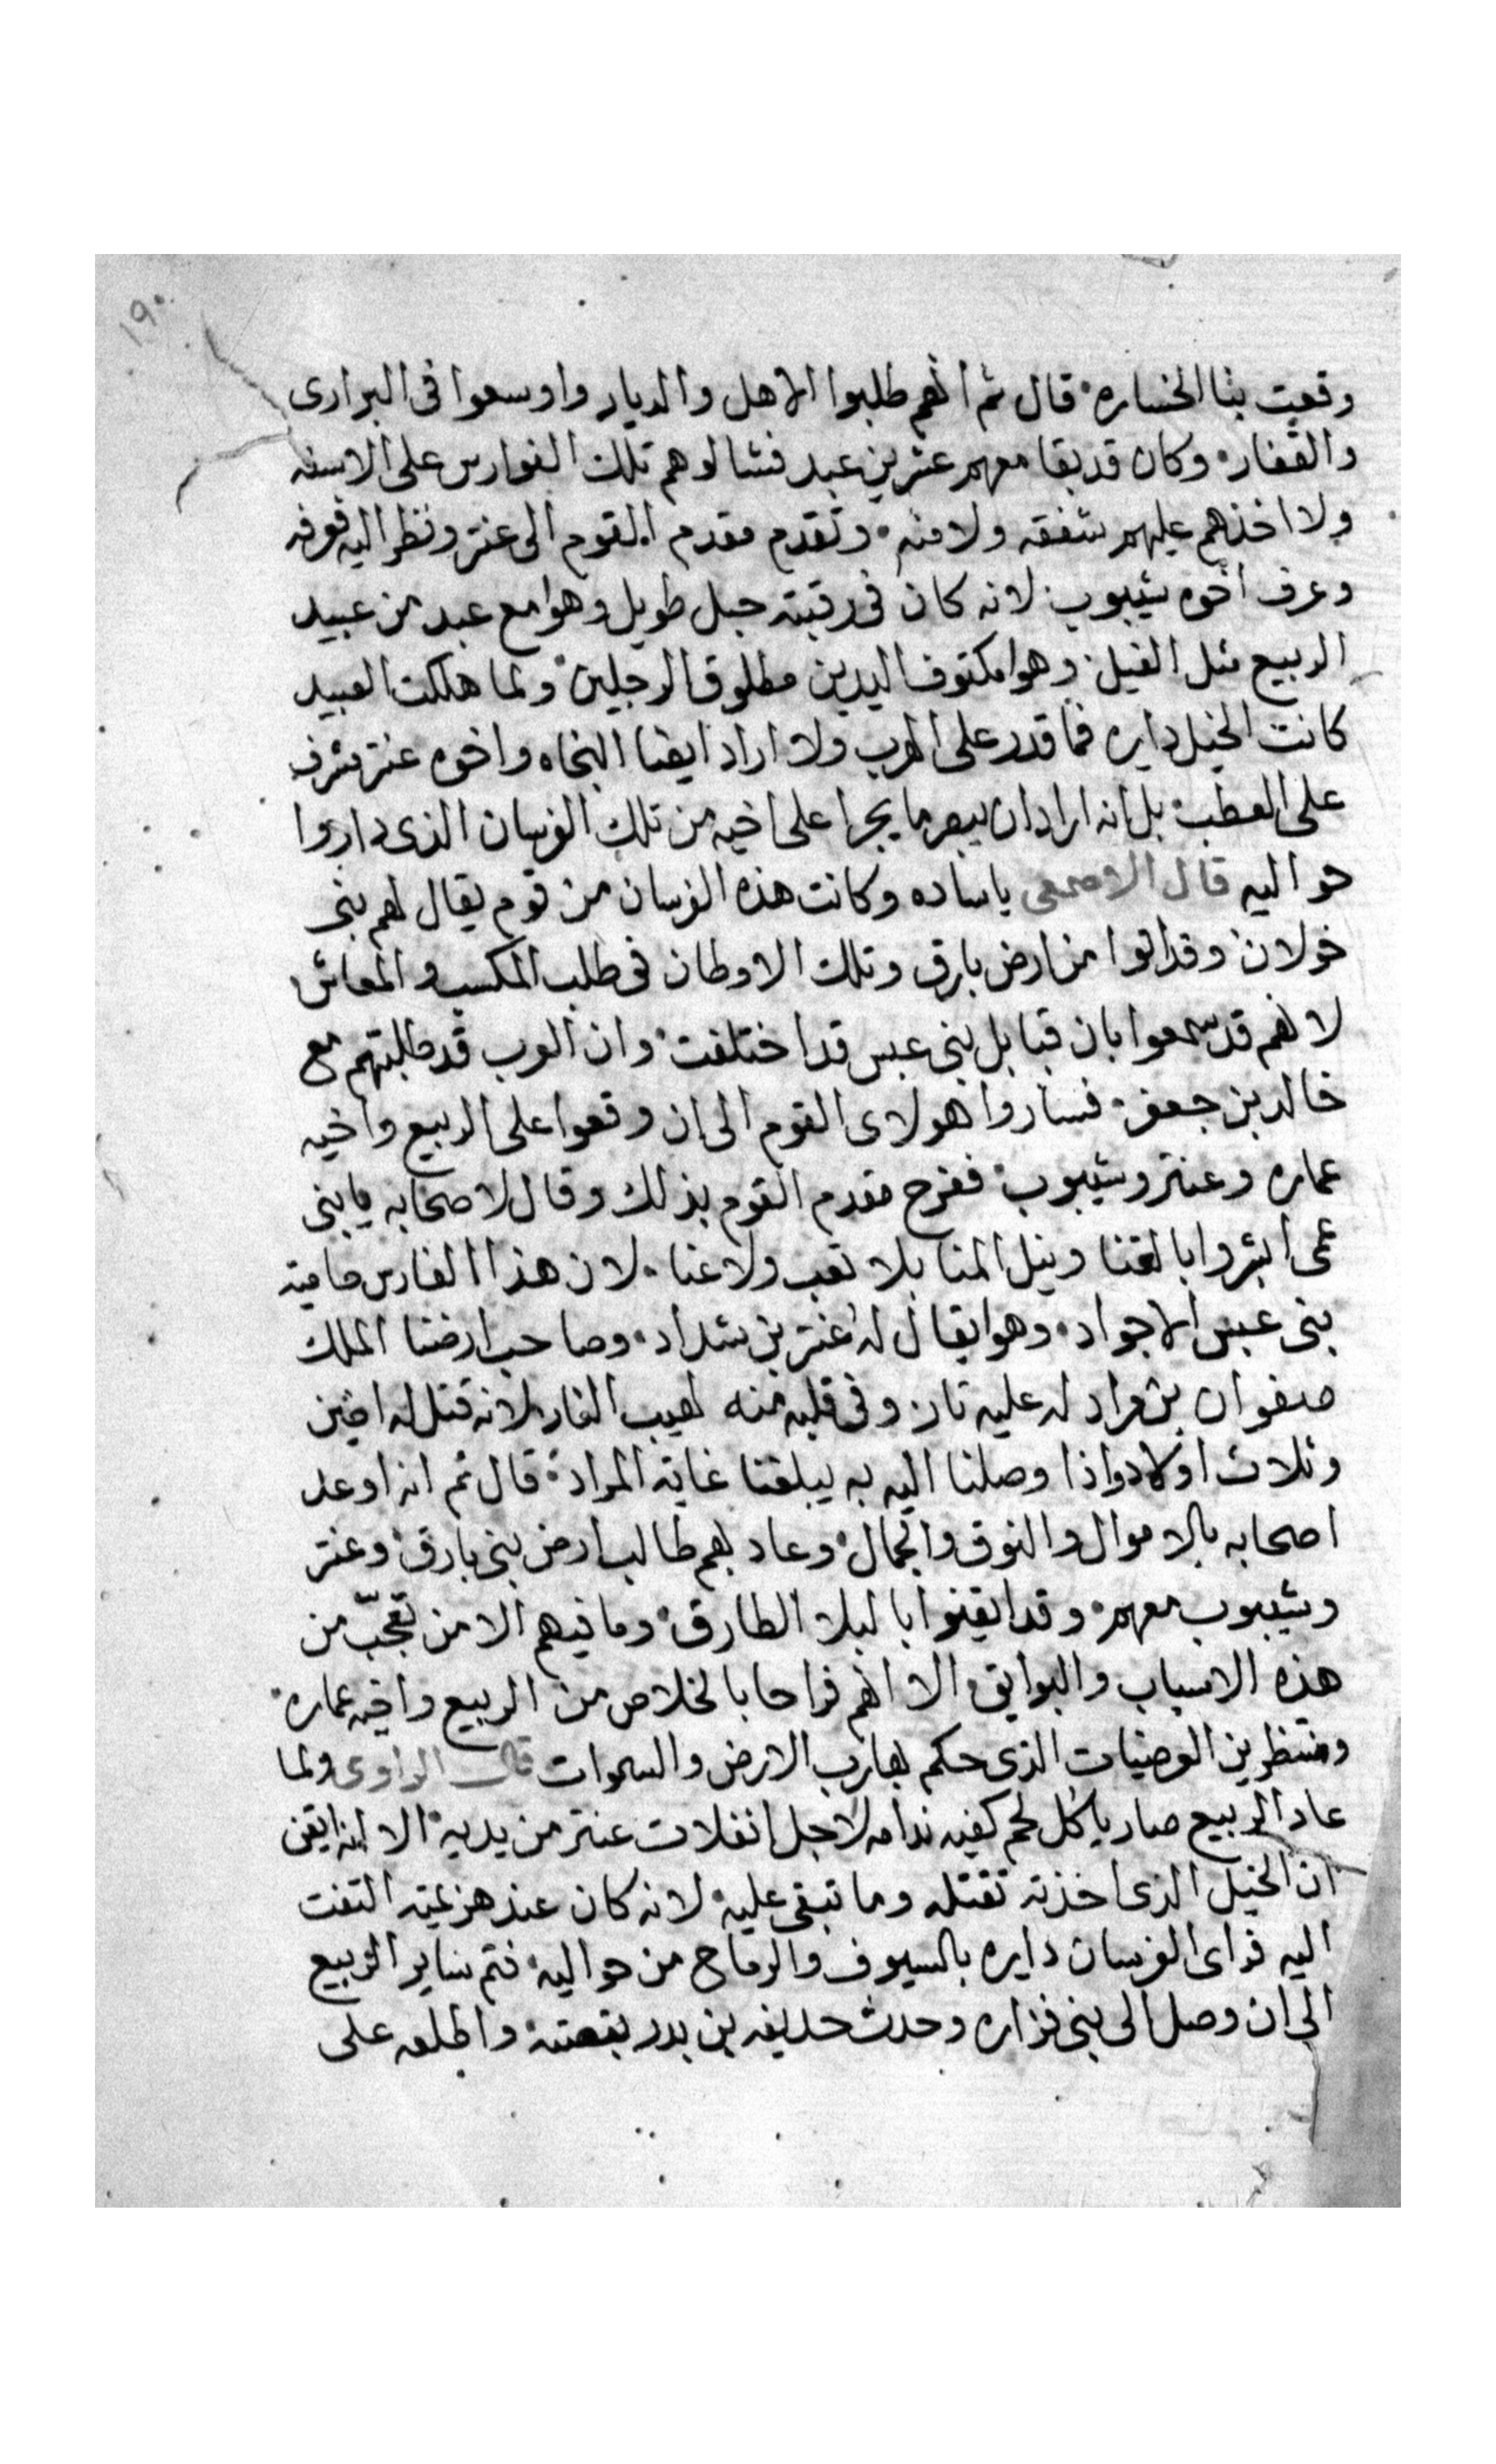 ١٩٠
وقعت بنا الخساره قال ثم انهم طلبوا الاهل والديار واوسعوا فى البرارى
والقفار وكان قد بقا معهم عشرين عبد فشالوهم تلك الفوارس على الاسنه
ولا اخذهم عليهم شفقه ولا منه وتقدم مقدم القوم الى عنتر ونظر اليه فعرفه
وعرف اخوه شيبوب لانه كان فى رقبته حبل طويل وهوا مع عبد من عبيد
الربيع مثل الفيل وهوا مكتوف اليدين مطلوق الرجلين ولما هلكت العبيد
كانت الخيل دايره فما قدر على الهرب ولا اراد ايضا النجاه واخوه عنتر مشرف
على العطب بل انه اراد ان يبصر ما يجرا على اخيه من تلك الفرسان الذى داروا
حواليه قال الاصمعى ياساده وكانت هذه الفرسان من قوم يقال لهم بنى
خولان وقد اتوا من ارض بارق وتلك الاوطان فى طلب المكسب والمعاش
لانهم قد سمعوا بان قبايل بنى عبس قد اختلفت وان العرب قد طلبتهم مع
خالد بن جعفر فساروا هولاى القوم الى ان وقعوا على الربيع واخيه
عماره وعنتر وشيبوب ففرح مقدم القوم بذلك وقال لاصحابه يا بنى
عمى ابشروا بالغنا ونيل المنا بلا تعب ولا عنا لان هذا الفارس حامية
بنى عبس الاجواد وهوا يقال له عنتر بن شداد وصاحب ارضنا الملك
صفوان بن مراد له عليه تار وفى قلبه منه لهيب النار لانه قتل له اخين
وثلاث اولاد واذا وصلنا اليه به يبلغنا غاية المراد قال ثم انه اوعد
اصحابه بالاموال والنوق والجمال وعاد بهم طالب ارض بنى بارق وعنتر
وشيبوب معهم وقد ايقنوا بالبلا الطارق وما فيهم الا من تعجّب من
هذه الاسباب والبوايق الا انهم فراحا بالخلاص من الربيع واخيه عماره
ومنتظرين القضيات الذى حكم بها رب الارض والسموات قال الراوى ولما
عاد الربيع صار ياكل لحم كفيه ندامه لاجل انفلات عنتر من يديه الا انه ايقن
ان الخيل الذى اخذته تقتله وما تبقى عليه لانه كان عند هزيمته التفت
اليه فراى الفرسان دايره بالسيوف والرماح من حواليه فتم ساير الربيع
الى ان وصل الى بنى فزاره وحدث حديفه بن بدر بقصته واطلعه على